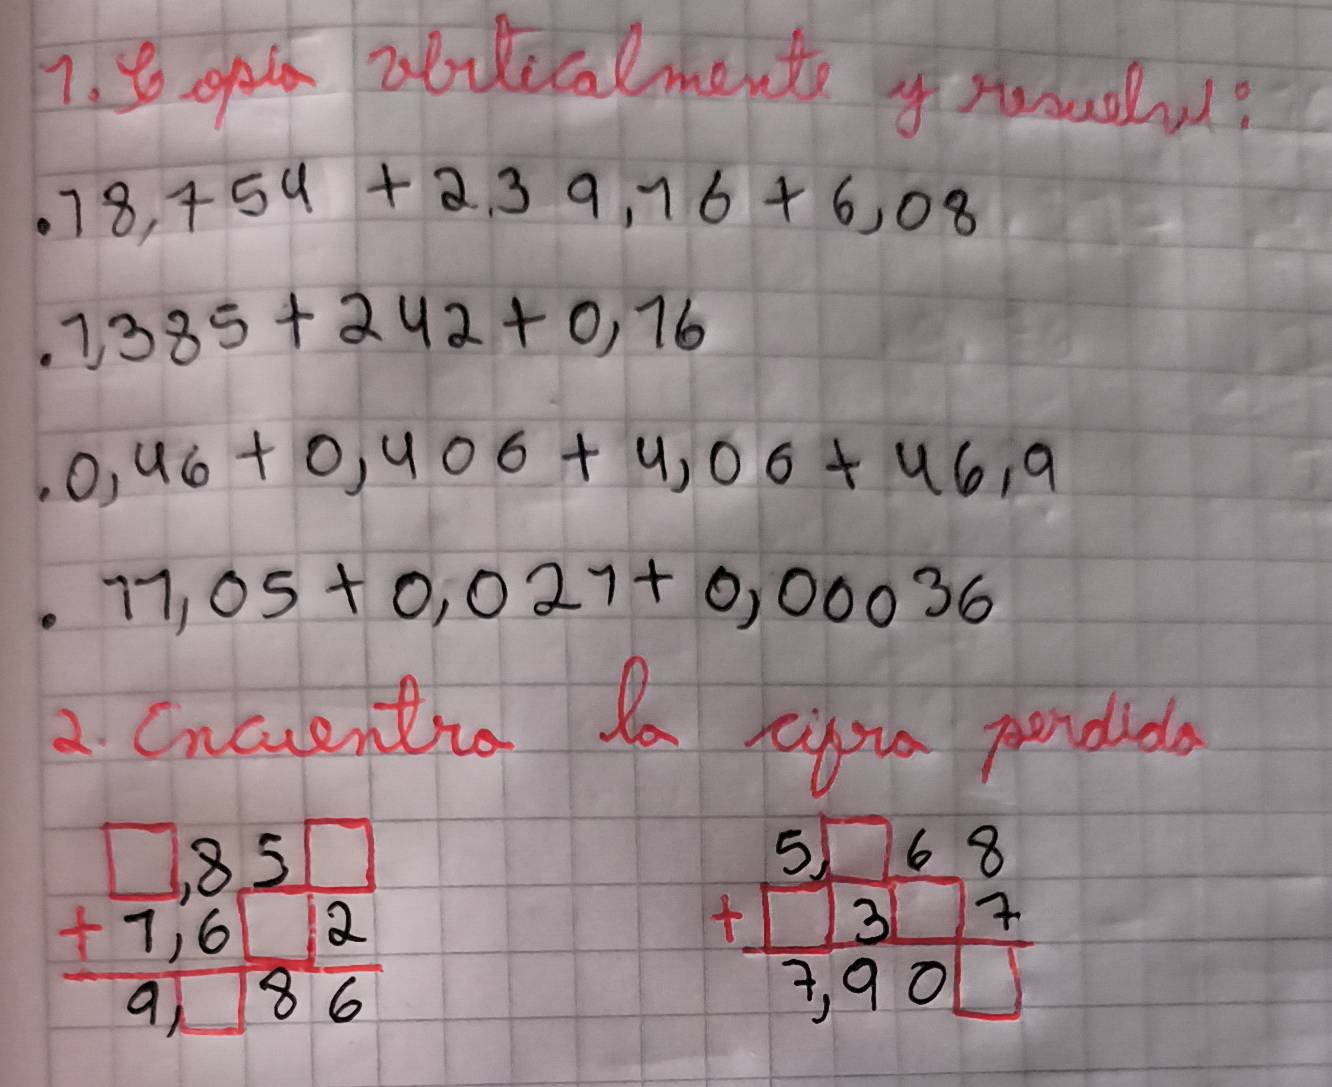 1. Copia verticalmente y resuelve:
.18,754 + 2.39,16 + 6,08
.1,385 + 242 + 0,16
.0,46 + 0,406 + 4,06 + 46,9
. 11,05 + 0,021 + 0,00036
2. Encuentra la cifra perdida
□,85□ 5,□68
+ 1,6□2 + □3□7
9,□86 7,90□